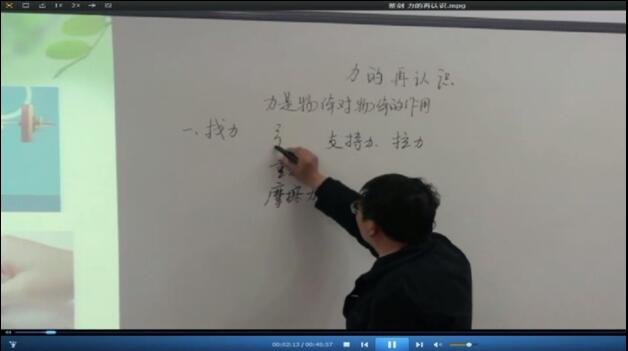 1× 2× 力的再认识.mpg
力的再认识
力是物体对物体的作用
一、找力 支持力、拉力
重
摩擦力
00:02:13 / 00:45:57